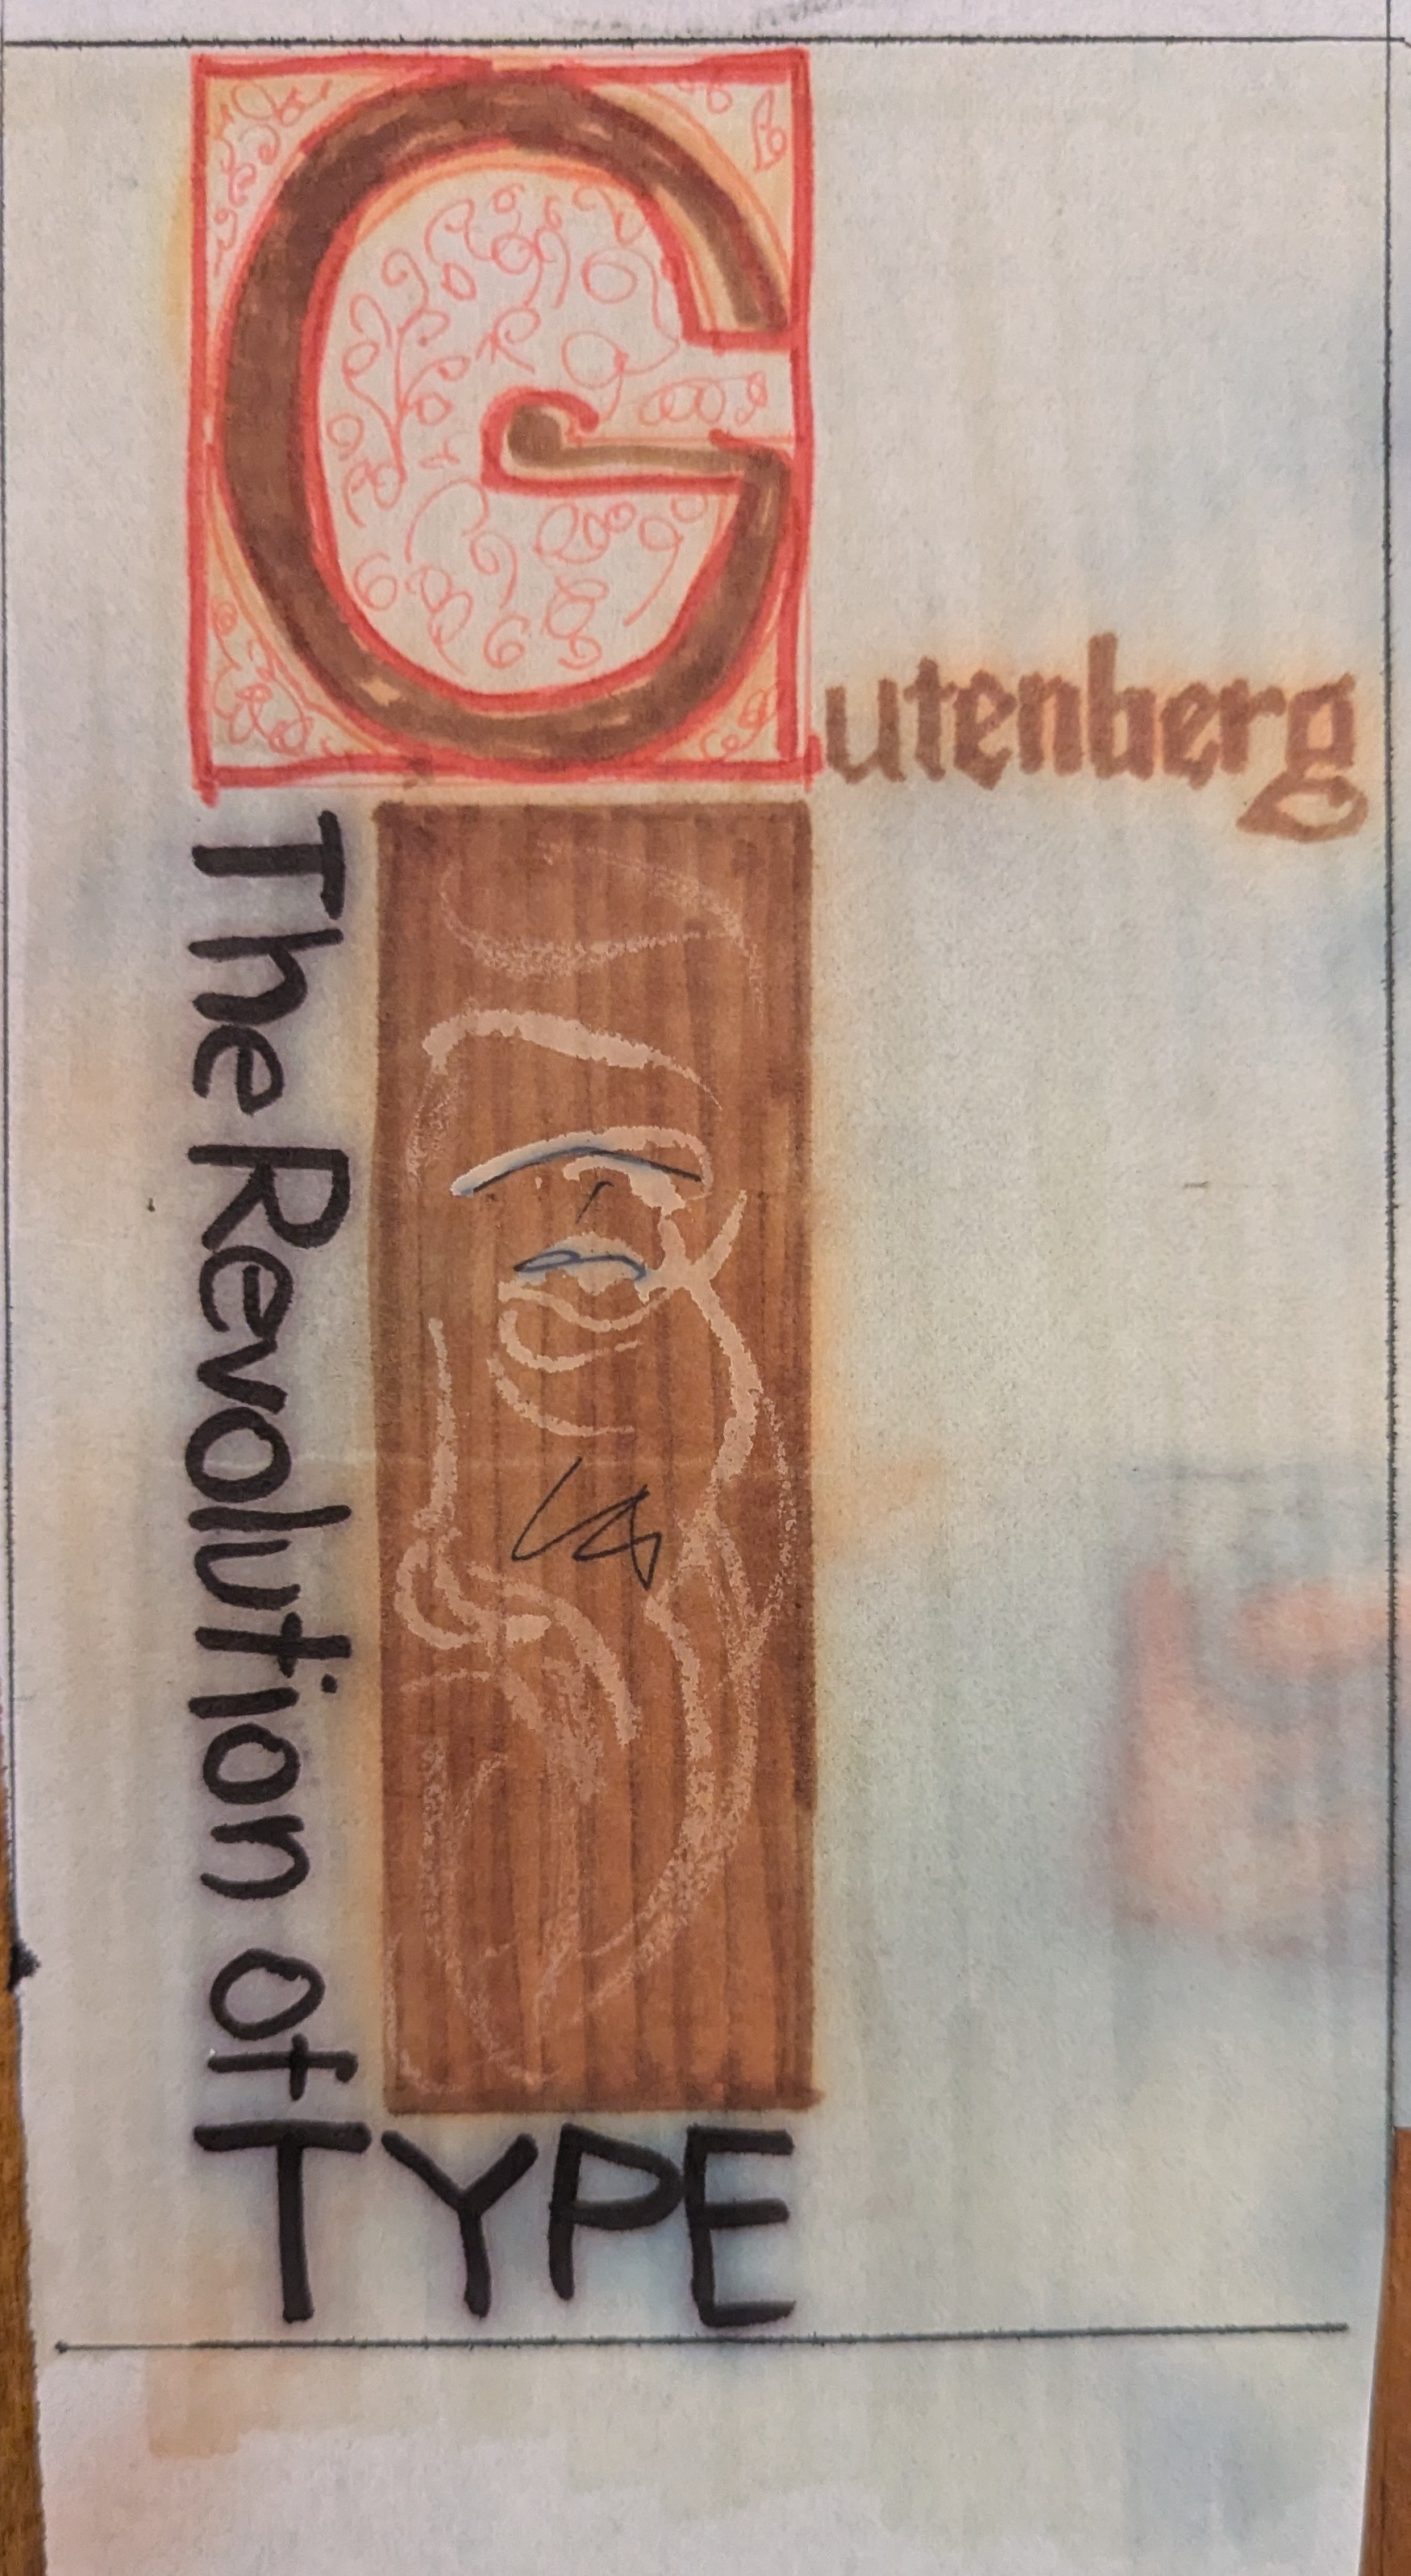 Gutenberg
The Revolution of
TYPE